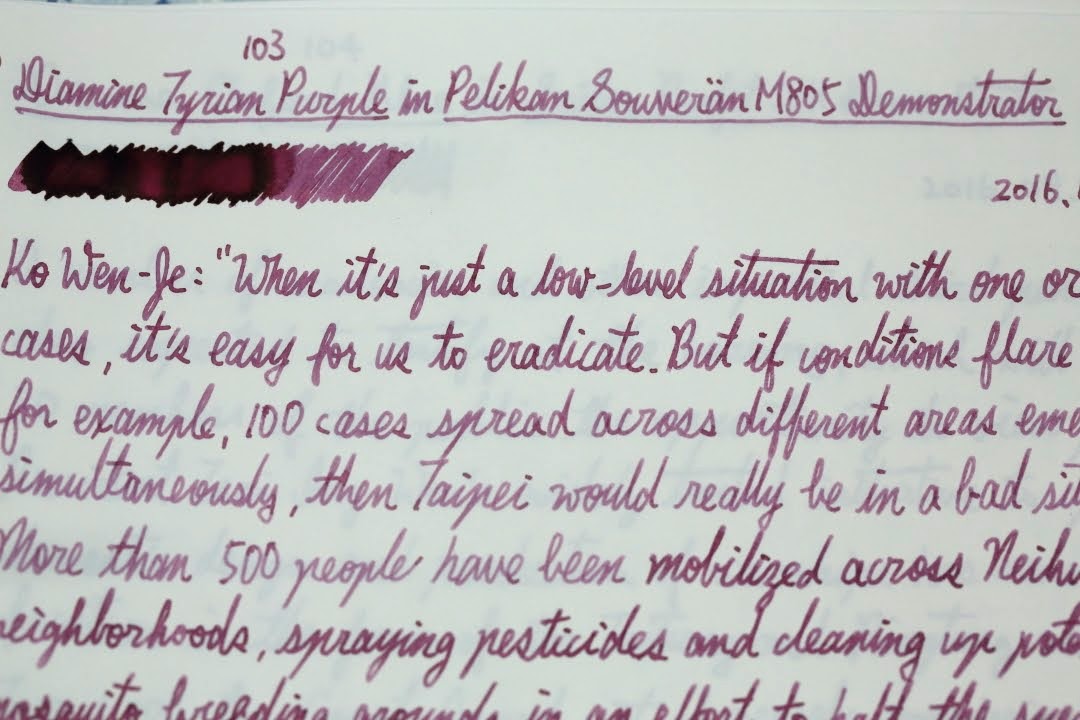 103
Diamine Tyrian Purple in Pelikan Souverän M805 Demonstrator
2016.
Ko Wen-Je: "When it's just a low-level situation with one or
cases, it's easy for us to eradicate. But if conditions flare
for example, 100 cases spread across different areas eme
simultaneously, then Taipei would really be in a bad sit
More than 500 people have been mobilized across Neihu
neighborhoods, spraying pesticides and cleaning up pote
mosquito breeding grounds in an effort to halt the